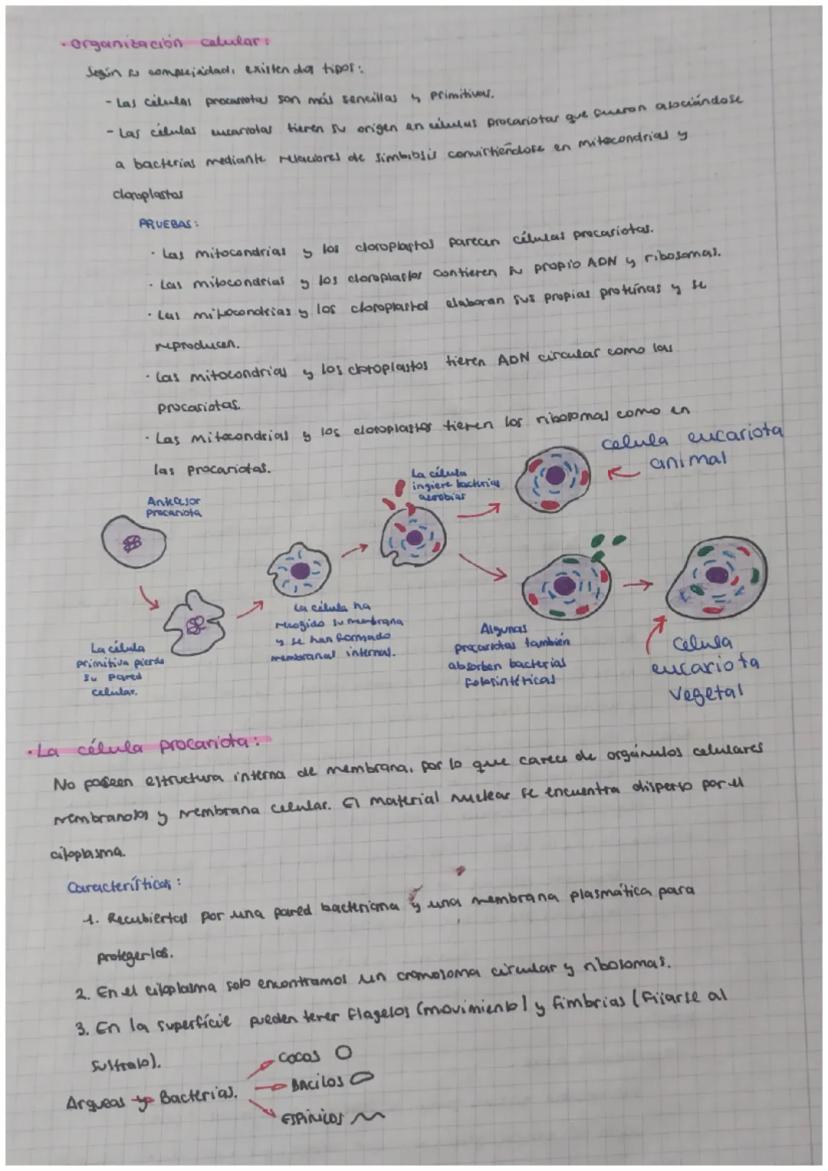 · Organización celular:
Según su complejidad, existen dos tipos:
- Las células procariotas son más sencillas y primitivas.
- Las células eucariotas tienen su origen en células procariotas que fueron asociándose
a bacterias mediante relaciones de simbiosis convirtiéndose en mitocondrias y
cloroplastos
PRUEBAS:
· Las mitocondrias y los cloroplastos parecen células procariotas.
· Las mitocondrias y los cloroplastos contienen su propio ADN y ribosomas.
· Las mitocondrias y los cloroplastos elaboran sus propias proteínas y se
reproducen.
· Las mitocondrias y los cloroplastos tienen ADN circular como las
procariotas.
· Las mitocondrias y los cloroplastos tienen los ribosomas como en
las procariotas.
Antecesor
procariota
La célula
primitiva pierde
su pared
celular.
La célula ha
recogido su membrana
y se han formado
membranas internas.
La célula
ingiere bacterias
aerobias
celula eucariota
animal
Algunas
procariotas también
absorben bacterias
fotosintéticas
Celula
eucariota
vegetal
· La célula procariota:
No poseen estructura interna de membrana, por lo que carece de orgánulos celulares
membranosos y membrana celular. El material nuclear se encuentra disperso por el
citoplasma.
Características:
1. Recubiertas por una pared bacteriana y una membrana plasmática para
protegerlas.
2. En el citoplasma solo encontramos un cromosoma circular y ribosomas.
3. En la superfície pueden tener flagelos (movimiento) y fimbrias (fijarse al
sustrato).
Arqueas y Bacterias.
Cocos
BACilos
ESPIRILOS